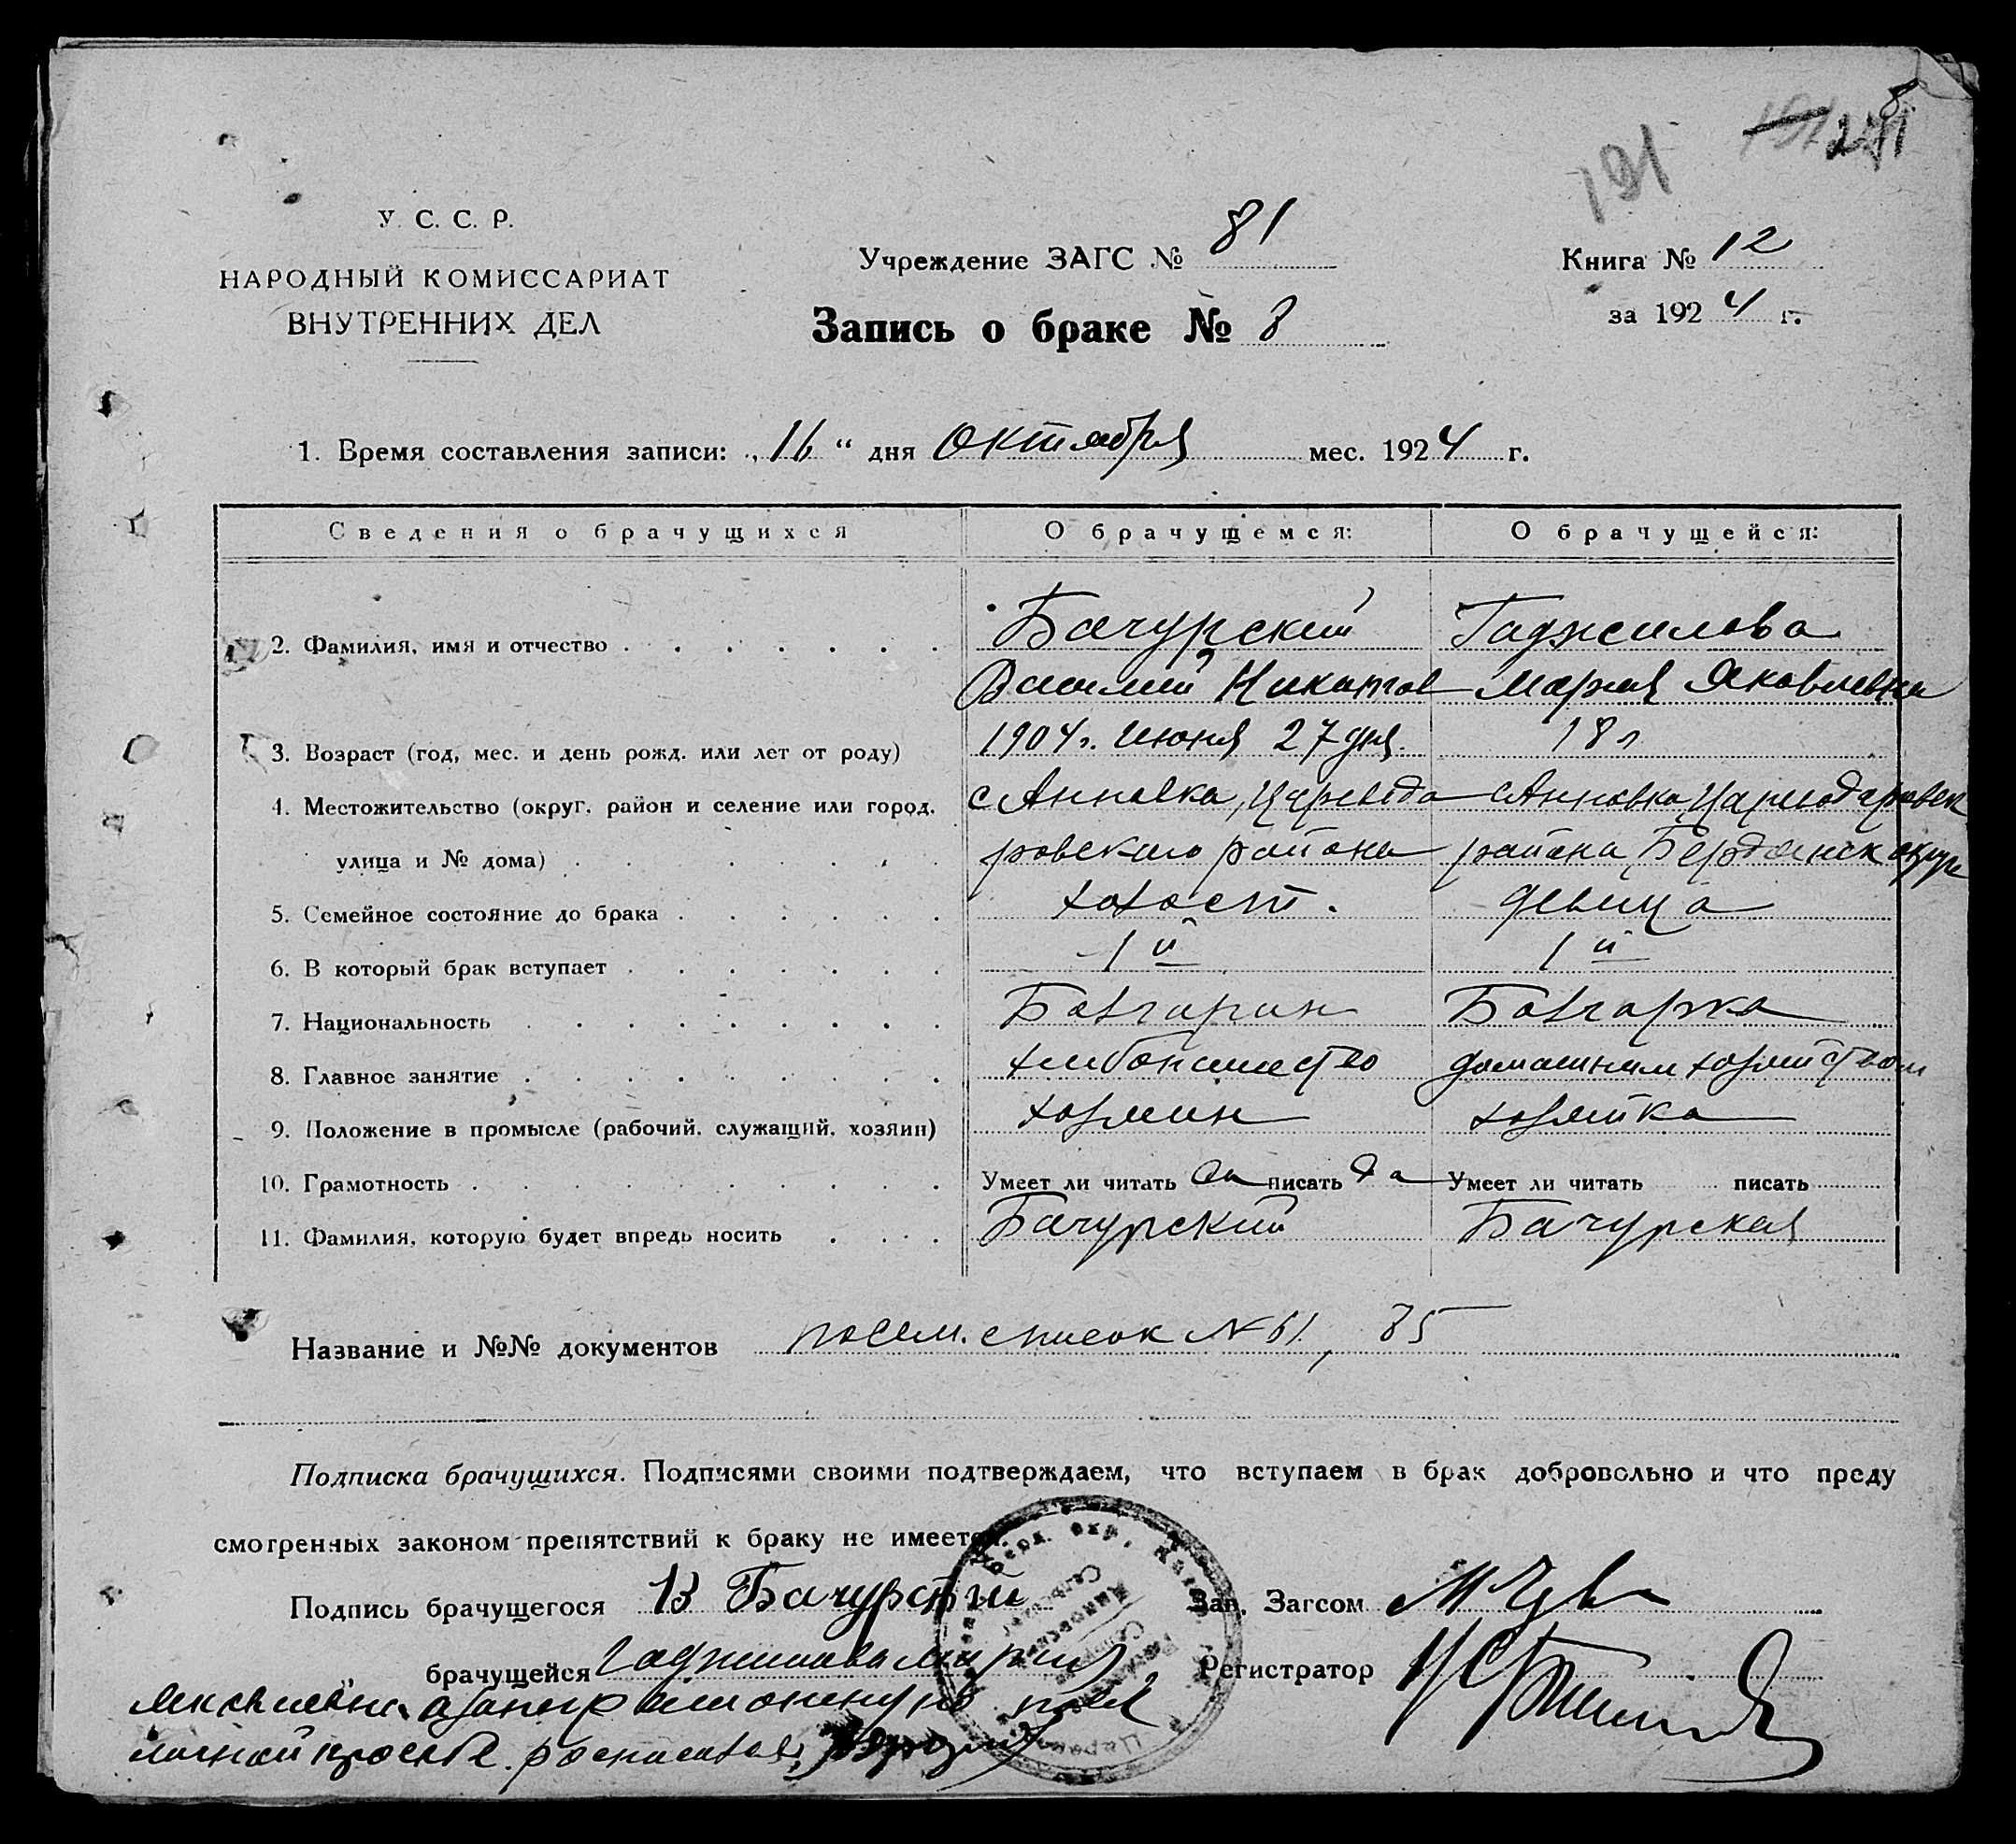 8
191 271
У. С. С. Р.
НАРОДНЫЙ КОМИССАРИАТ
ВНУТРЕННИХ ДЕЛ
Учреждение ЗАГС № 81
Запись о браке № 8
Книга № 12
за 1924 г.
1. Время составления записи: „16“ дня Октября мес. 1924 г.
Сведения о брачущихся О брачущемся: О брачущейся:
2. Фамилия, имя и отчество Бачурский Гаджилова
Василий Никитов Мария Яковлевна
3. Возраст (год, мес. и день рожд. или лет от роду) 1904 г. Июня 27 дня 18 л
4. Местожительство (округ, район и селение или город, с Анновка, Царевода с Анновка, Царeводаровск
улица и № дома) ровского района района Бердянск округа
5. Семейное состояние до брака холост. девица
6. В который брак вступает 1й 1й
7. Национальность Болгарин Болгарка
8. Главное занятие хлебопашество домашним хозяйством
9. Положение в промысле (рабочий, служащий, хозяин) хозяин хозяйка
10. Грамотность Умеет ли читать да писать да Умеет ли читать писать
11. Фамилия, которую будет впредь носить Бачурский Бачурская
Название и №№ документов посем. список № 61, 85
Подписка брачущихся. Подписями своими подтверждаем, что вступаем в брак добровольно и что преду
смотренных законом препятствий к браку не имеется.
Подпись брачущегося В Бачурский Зав. Загсом
„ брачущейся Гаджилова Мария Регистратор
Яковлевна а за неграмотную по её
личной просьбе росписался